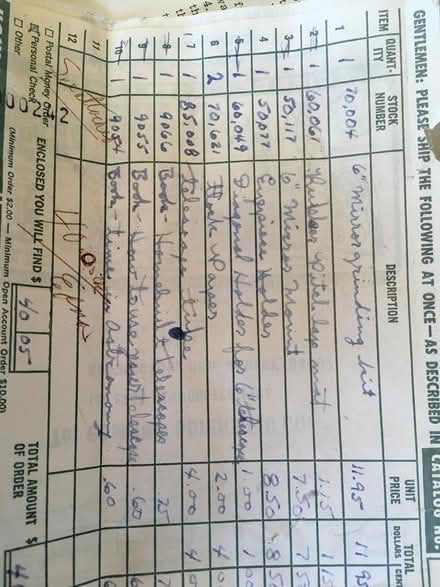 GENTLEMEN: PLEASE SHIP THE FOLLOWING AT ONCE—AS DESCRIBED IN CATALOG NO.
ITEM QUANTITY STOCK NUMBER DESCRIPTION UNIT PRICE TOTAL DOLLARS CENTS
1 1 70,004 6" Mirror grinding kit 11.95 11 9
2 1 60,061 Rubber Pitch lap mat 1.15 1 15
3 1 50,117 6" Mirror Mount 7.50 7 5
4 1 50,077 Eyepiece Holder 8.50 8 5
5 1 60,049 Diagonal Holder for 6" telescope 1.00 1 0
6 2 70,621 Paper 2.00 4 0
7 1 85,008 telescope tube 4.00 4 0
8 1 9066 Book - Homebuilt telescopes .75 7
9 1 9055 Book - How to use your telescope .60 6
10 1 9054 Book - time in astronomy .60 6
11
12
Postal Money Order
Personal Check
Other
ENCLOSED YOU WILL FIND $ 40 05
TOTAL AMOUNT OF ORDER $ 4
(Minimum Order $2.00 — Minimum Open Account Order $10.00)